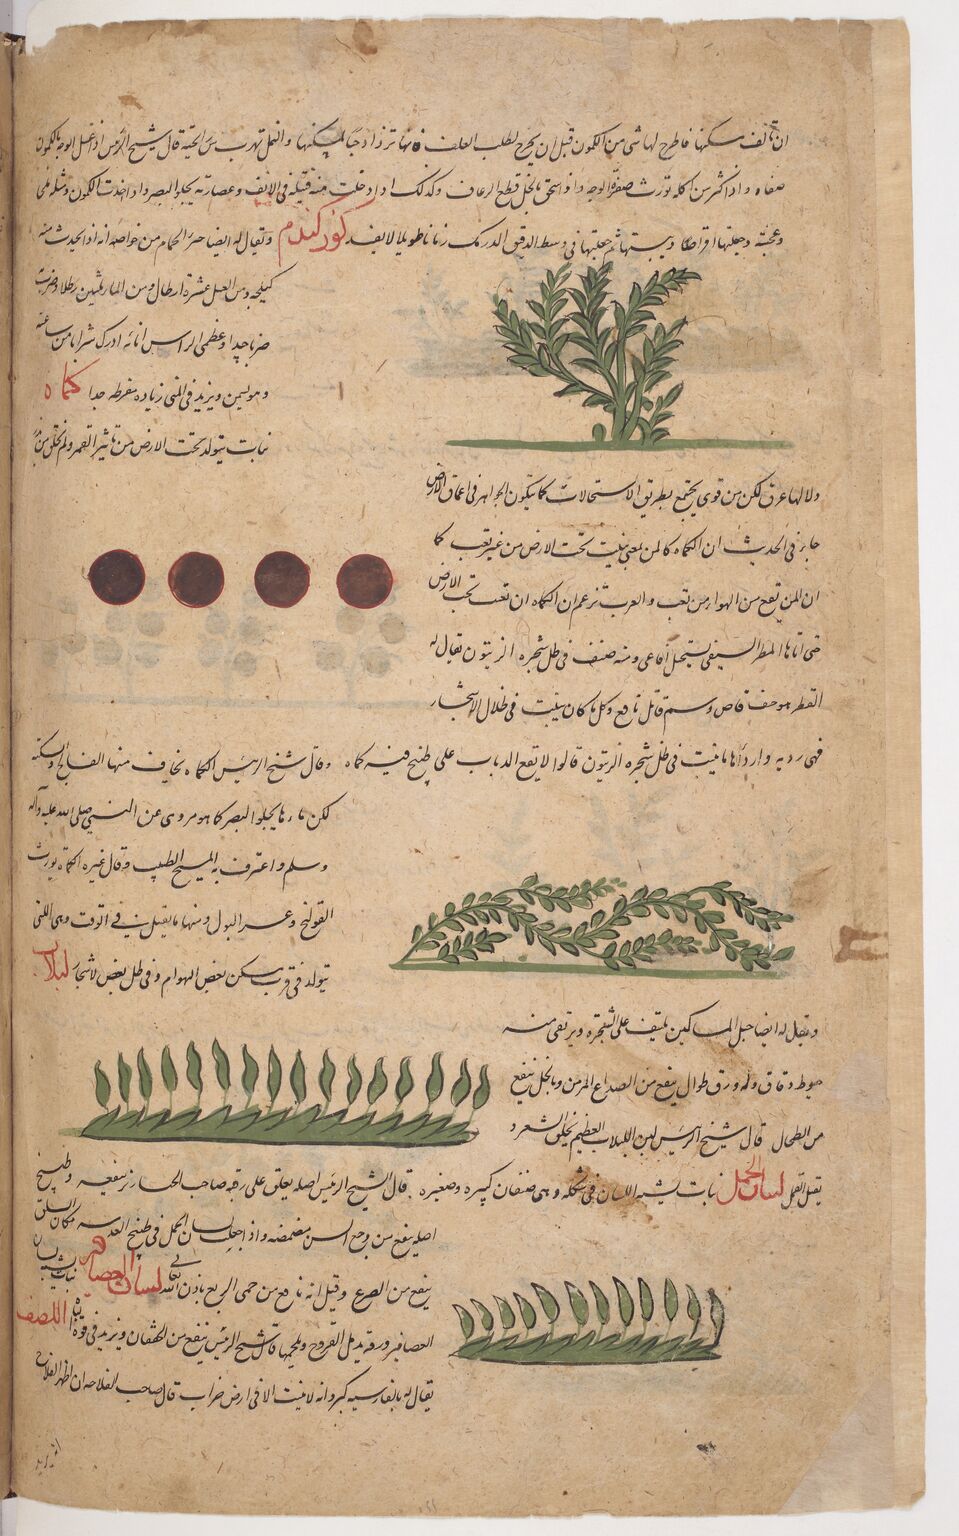 ان تالف مسكنها فاطرح لها شى من الكمون قبل ان يخرج لطلب العلف فانها تزداد حبا لمسكنها والنمل تهرب من قال شيخ الرئيس اذا غسل الوجه بالكمون
صفاه واذا اكثر من اكله تورث صفرة الوجه واذا سحق بالخل قطع الرعاف وكذلك اذا دخلت منه فتيلة فى الانف وعصارته يجلوا البصر واذا اخذت الكمون ومثله
وعجنته وجعلتها اقراصا ويبستها ثم جعلتها فى وسط الدقيق زمانا طويلا لا يفسد كور كندم ويقال له ايضا خرء الحمام من خواصه انه اذا اخذت منه
كيلجه ومن العسل عشرة ارطال ومن الماء ثلثين رطلا وضربت
ضربا جيدا وغطى الراس انائه ادرك شرابا من ساعته
وهو يسمن ويزيد فى المنى زيادة مفرطه جدا كماه
نبات يتولد تحت الارض من تاثير القمر ولم يخلق من بزر
ولا لها عرق لكن من قوى يجتمع بطريق الاستحالات كما يتكون الجواهر فى اعماق الارض
جابر فى الحديث ان الكماه كالمن يعنى ينبت تحت الارض من غير تعب كما
ان المن يقع من الهوا من تعب والعرب تزعم ان الكماه ان تحت الارض
حتى اتاها المطر الصيفى يستحيل افاعى ومنه صنف فى ظل شجرة الزيتون يقال له
القطر هو حتف قاض وسم قاتل وكل ما كان ينبت فى ظلال الاشجار
فهى رديه واردأها ما نبت فى ظل شجرة الزيتون قالوا لا يقع الذباب على طبيخ فيه كماه وقال شيخ الرئيس الكماه يخاف منها الفالج والسكته
لكن ماءها يجلوا البصر كما هو مروى عن النبى صلى الله عليه وآله
وسلم واعترف به المسيح الطبيب وقال غيره الكماة يورث
القولنج وعسر البول ومنها ما يقتل فى الوقت وهى اللتى
يتولد فى قرب مسكن بعض الهوام وفى ظل بعض الاشجار لبلاب
ويقال له ايضا حبل المساكين يلتف على الشجرة ويرتقى منه
خيوط دقاق وله ورق طوال ينفع من الصداع المزمن وبالخل ينفع
من الطحال قال شيخ الرئيس لبن اللبلاب العظيم يحلق الشعر و
يقتل القمل لسان الحمل نبات يشبه اللسان فى شكله وهى صنفان كبيره وصغيره قال الشيخ الرئيس اصله يعلق على رقبة صاحب الخنازير ينفعه وطبيخ
اصله ينفع من وجع السن مضمضه واذا جعل لسان الحمل فى طبيخ العدسه مكان السلق
ينفع من الصرع وقيل انه نافع من حمى الربع باذن الله تعالى لسان العصافير نبات يشبه لسان
العصافير ورقه يدمل القروح ويلحمها قال شيخ الرئيس ينفع من الخفقان ويزيد فى قوة الباه اللصف
يقال له بالفارسيه كبر وانه لا ينبت الا فى ارض خراب قال صاحب الفلاحه ان اظهر الفلاح